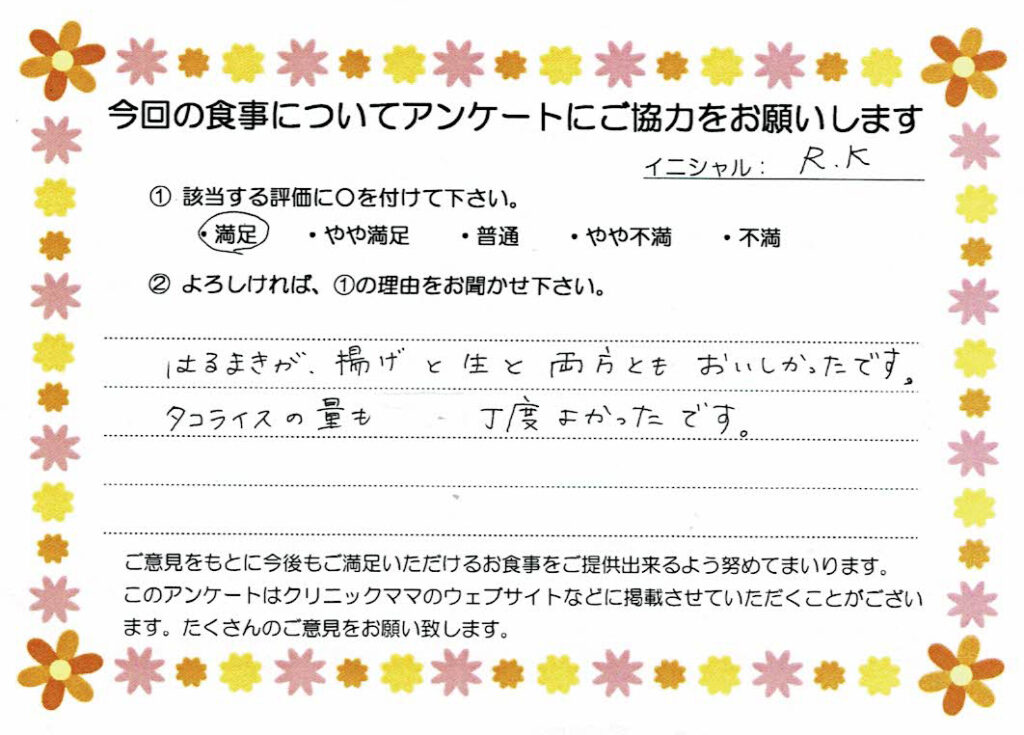 今回の食事についてアンケートにご協力をお願いします
イニシャル： R.K
① 該当する評価に〇を付けて下さい。
・満足 ・やや満足 ・普通 ・やや不満 ・不満
② よろしければ、①の理由をお聞かせ下さい。
はるまきが、揚げと生と両方ともおいしかったです。
タコライスの量も 丁度よかったです。
ご意見をもとに今後もご満足いただけるお食事をご提供出来るよう努めてまいります。
このアンケートはクリニックママのウェブサイトなどに掲載させていただくことがござい
ます。たくさんのご意見をお願い致します。